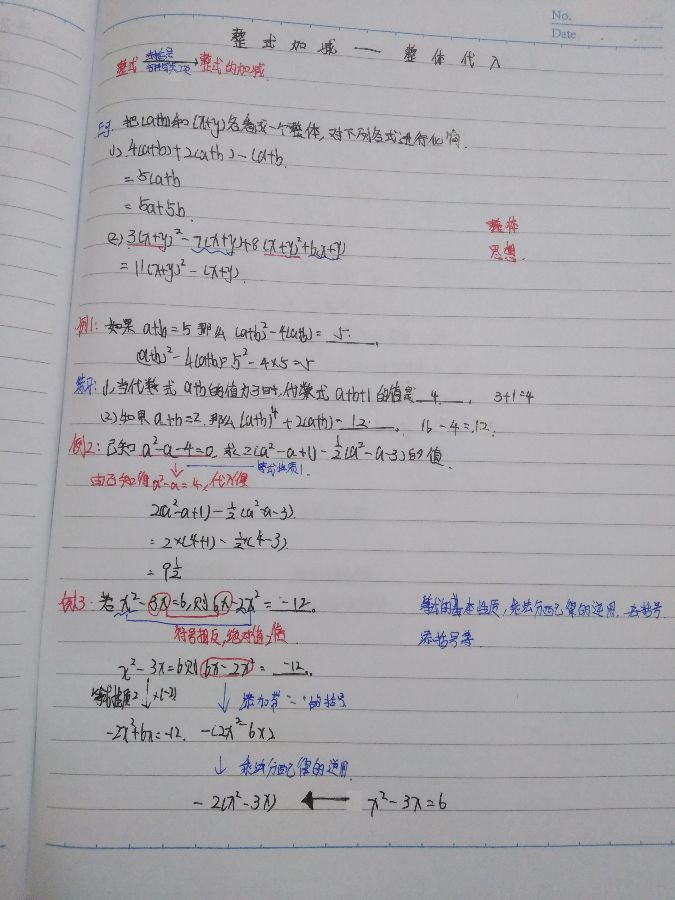 No.
Date
整式加减 — 整体代入
去括号
整式 → 整式的加减
合并同类项
例. 把(a+b)和(x+y)各看成一个整体,对下列各式进行化简.
(1) 4(a+b)+2(a+b)-(a+b)
=5(a+b)
=5a+5b.
(2) 3(x+y)²-7(x+y)+8(x+y)²+6(x+y)
=11(x+y)²-(x+y).
整体
思想.
例1: 如果 a+b=5 那么 (a+b)²-4(a+b)= 5.
(a+b)²-4(a+b)=5²-4×5=5
练习: (1)当代数式 a+b的值为3时,代数式 a+b+1的值是 4. 3+1=4
(2)如果a+b=2,那么(a+b)⁴+2(a+b)=12. 16-4=12.
例2: 已知a²-a-4=0,求2(a²-a+1)-½(a²-a-3)的值.
等式性质1.
由已知得a²-a=4,代入得
2(a²-a+1)-½(a²-a-3)
=2×(4+1)-½×(4-3)
=9½
例3: 若x²-3x=6,则6x-2x²=-12。
等式的基本性质,乘法分配律的逆用,去括号
符号相反,绝对值2倍
添括号等.
x²-3x=6则6x-2x²=-12.
等式性质2 ×(-2) 添加带"-"的括号
-2x²+6x=-12. -(2x²-6x)
↓ 乘法分配律的逆用
-2(x²-3x) ← x²-3x=6